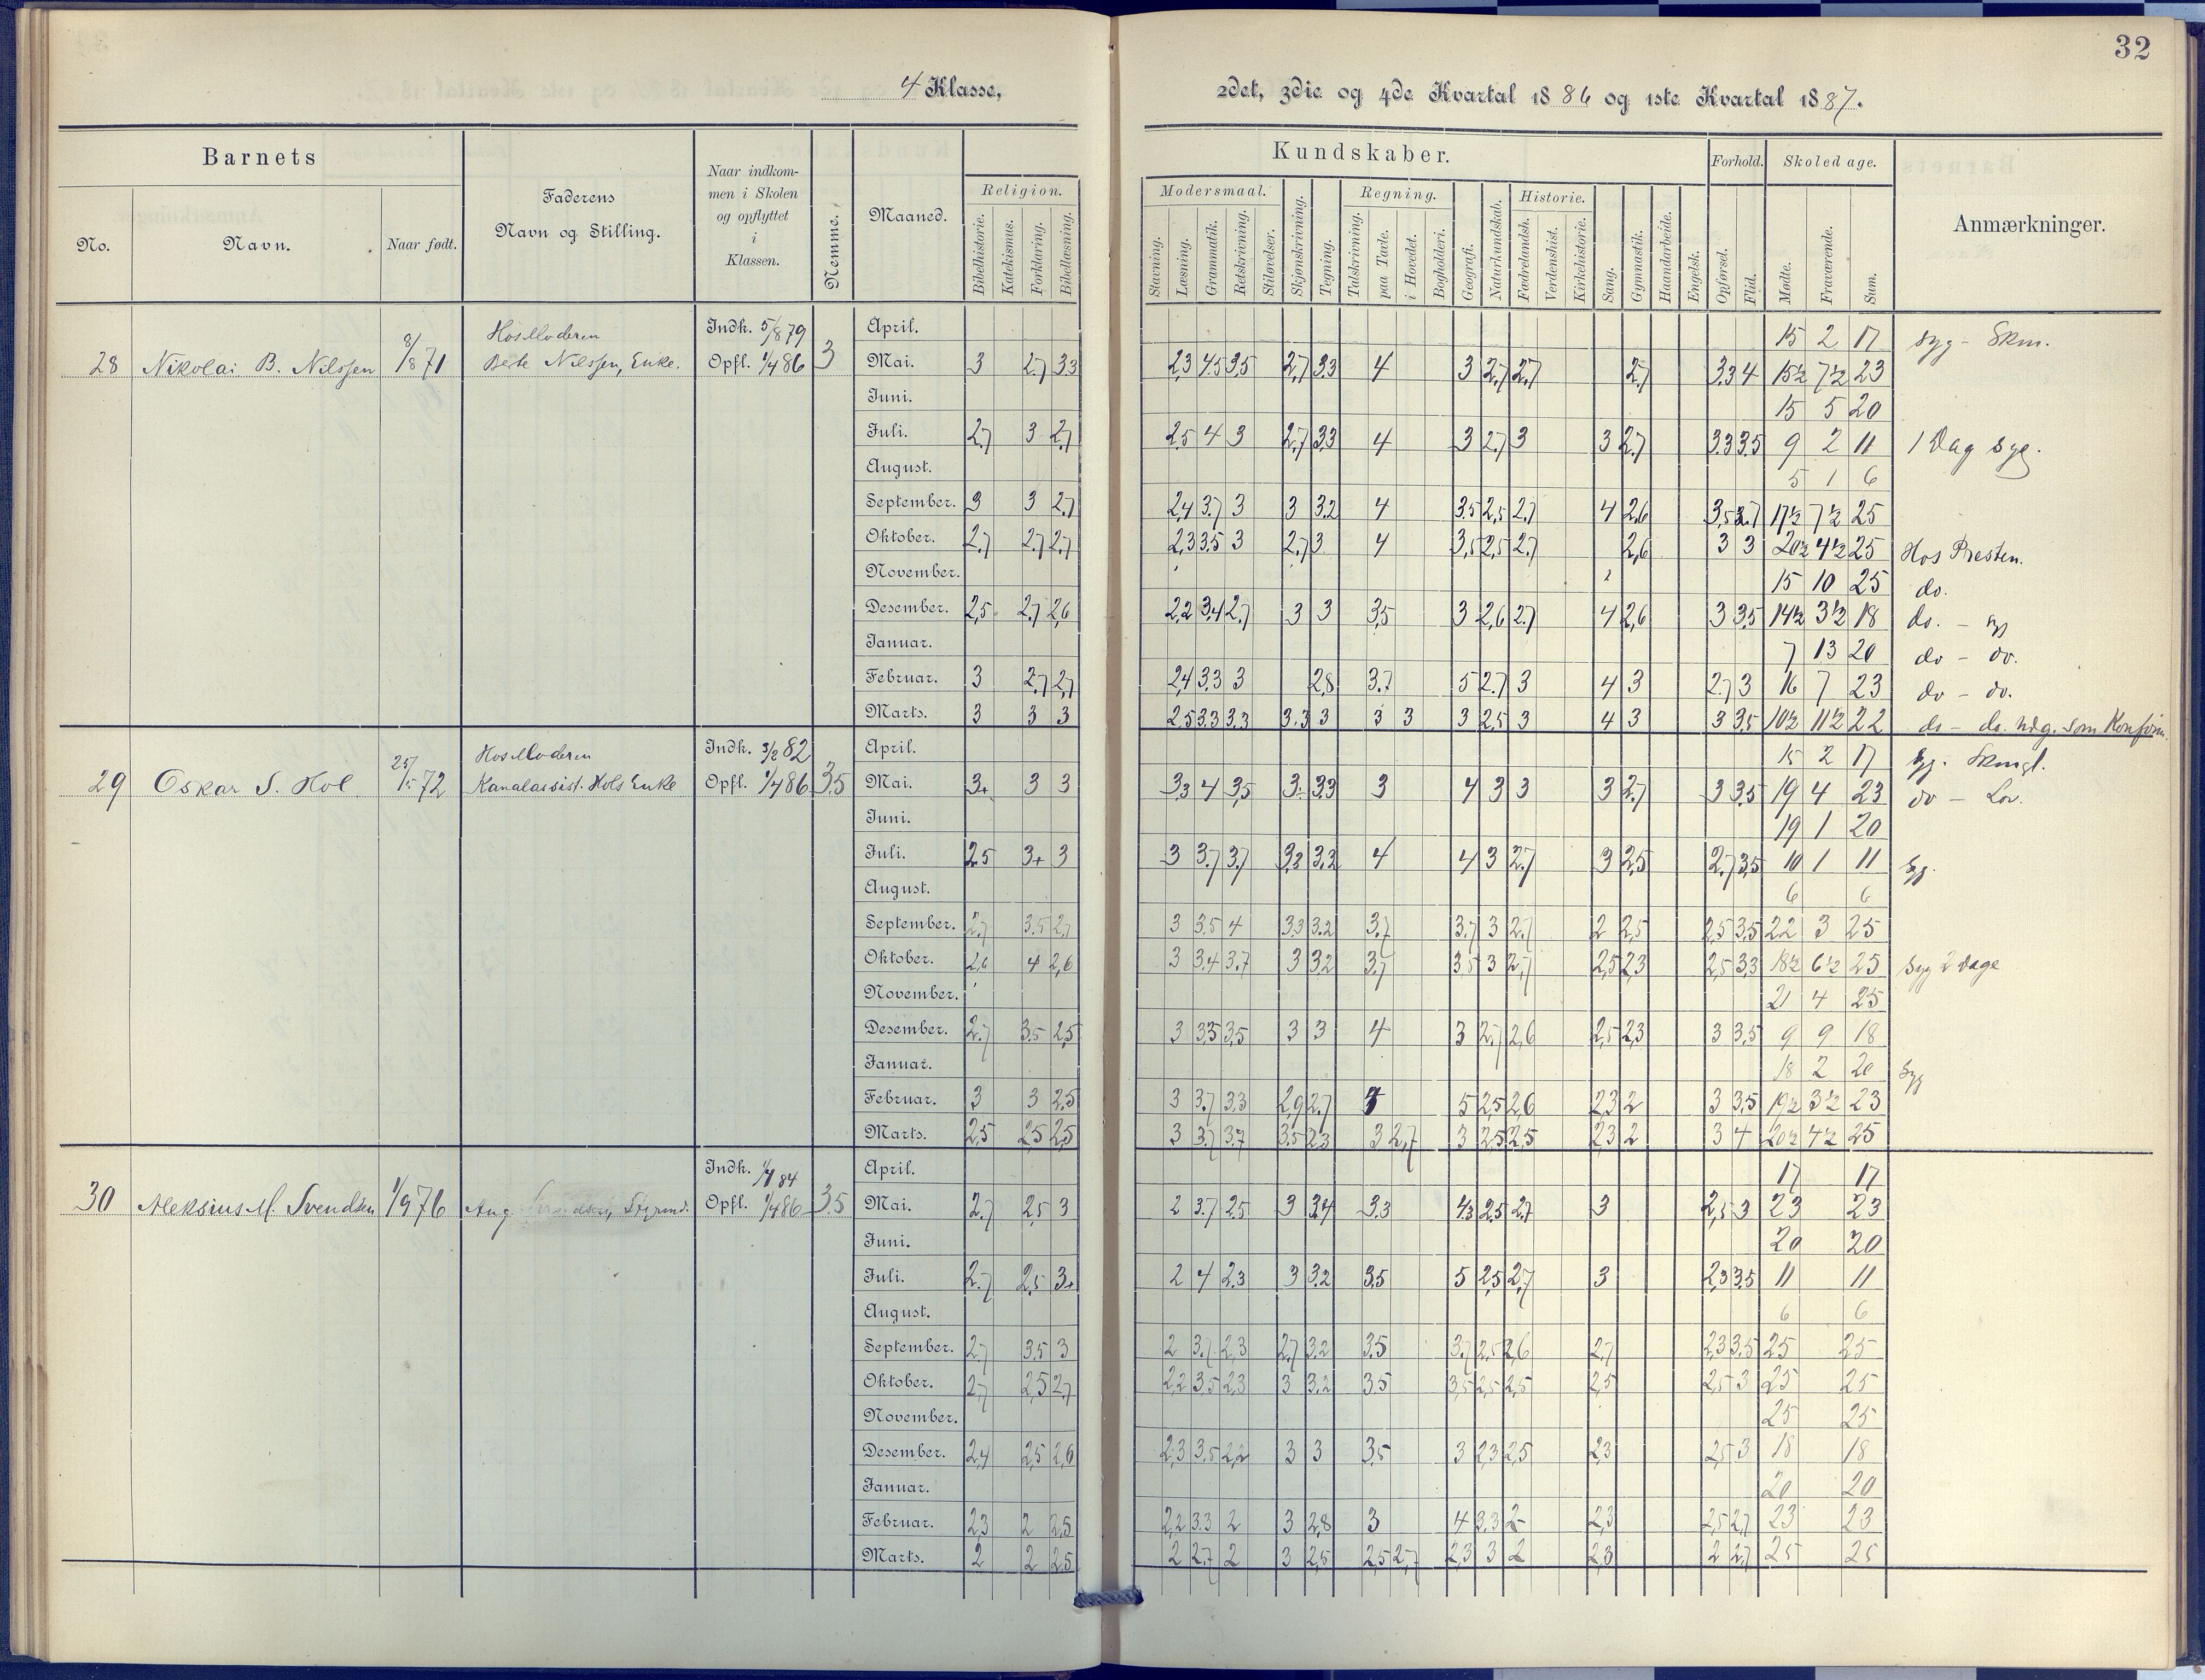 32
4 Klasse,
2det, 3die og 4de Kvartal 1886 og 1ste Kvartal 1887.
Barnets
No.
Navn.
Naar født.
Faderens
Navn og Stilling.
Naar indkom-
men i Skolen
og opflyttet
i
Klassen.
Nemme.
Maaned.
Kundskaber.
Religion.
Bibelhistorie.
Katekismus.
Forklaring.
Bibellæsning.
Modersmaal.
Stavning.
Læsning.
Grammatik.
Retskrivning.
Stiløvelser.
Skjønskrivning.
Tegning.
Regning.
Talskrivning.
paa Tavle.
i Hovedet.
Bogholderi.
Geografi.
Naturkundskab.
Historie.
Fædrelandsh.
Verdenshist.
Kirkehistorie.
Sang.
Gymnastik.
Haandarbeide.
Engelsk.
Forhold.
Opførsel.
Flid.
Skoledage.
Mødte.
Fraværende.
Sum.
Anmærkninger.
28 Nikolai B. Nilssen 8/8 71
Hos Moderen
Nilssen, Enke.
Indk. 5/8 79
Opfl. 1/4 86 3
April. 15 2 17 syg - Skm.
Mai. 3 2.7 3.3 2,3 4.5 3.5 2,7 3.3 4 3 2,7 2,7 2,7 3.3 4 15½ 7½ 23
Juni. 15 5 20
Juli. 2.7 3 2,7 2,5 4 3 2,7 3.3 4 3 2,7 3 3 2,7 3.3 3.5 9 2 11 1 Dag syg.
August. 5 1 6
September. 3 3 2,7 2,4 3,7 3 3 3.2 4 3.5 2,5 2,7 4 2,6 3,5 2.7 17½ 7½ 25
Oktober. 2.7 2.7 2.7 2,3 3.5 3 2.7 3 4 3,5 2,5 2.7 2,6 3 3 20½ 4½ 25 Hos Presten.
November. 15 10 25 do.
Desember. 2,5 2.7 2,6 2,2 3,4 2.7 3 3 3,5 3 2,6 2.7 4 2,6 3 3.5 14½ 3½ 18 do. - syg
Januar. 7 13 20 do - do.
Februar. 3 2,7 2,7 2,4 3.3 3 2,8 3.7 5 2.7 3 4 3 2.7 3 16 7 23 do - do.
Marts. 3 3 3 2.5 3.3 3.3 3.3 3 3 3 3 2,5 3 4 3 3 3.5 10½ 11½ 22 do - do. udg. som Konfirm.
29 Oskar S. Hol 25/5 72
Hos Moderen
Kanalassist. Hols Enke
Indk. 3/2 82
Opfl. 1/4 86 3.5
April. 15 2 17 syg. Skmgl.
Mai. 3+ 3 3 3,3 4 3,5 3. 3.3 3 4 3 3 3 2,7 3 3.5 19 4 23 do - Lov.
Juni. 19 1 20
Juli. 2.5 3+ 3 3 3.7 3,7 3,3 3.2 4 4 3 2,7 3 2,5 2.7 3,5 10 1 11 syg.
August. 6 6
September. 2,7 3.5 2,7 3 3.5 4 3.3 3.2 3.7 3,7 3 2,7 2 2,5 2,5 3.5 22 3 25
Oktober. 2,6 4 2,6 3 3.4 3.7 3 3.2 3,7 3.5 3 2,7 2,5 2,3 2,5 3.3 18½ 6½ 25 syg 2 Dage
November. 21 4 25
Desember. 2.7 3.5 2,5 3 3.5 3,5 3 3 4 3 2.7 2,6 2,5 2,3 3 3.5 9 9 18
Januar. 18 2 20 syg
Februar. 3 3 2.5 3 3.7 3.3 2,9 2.7 5 2,5 2,6 2,3 2 3 3,5 19½ 3½ 23
Marts. 2,5 2,5 2,5 3 3.7 3.7 3.5 2.3 3 2,7 3 2,5 2,5 2,3 2 3 4 20½ 4½ 25
30 Aleksius M. Svendsen 1/9 76 Aug.
Indk. 1/4 84
Opfl. 1/4 86 3.5
April. 17 17
Mai. 2.7 2,5 3 2 3.7 2.5 3 3.4 3.3 4,3 2,5 2,7 3 2,5 3 23 23
Juni. 20 20
Juli. 2.7 2,5 3+ 2 4 2,3 3 3.2 3,5 5 2,5 2,7 3 2,3 3.5 11 11
August. 6 6
September. 2,7 3.5 3 2 3.7 2,3 2,7 3.2 3.5 3.7 2,5 2,6 2,7 2,3 3.5 25 25
Oktober. 2,7 2,5 2,7 2,2 3.5 2,3 3 3,2 3.5 3,5 2,5 2,5 2,5 2,5 3 25 25
November. 25 25
Desember. 2,4 2,5 2,6 2,3 3.5 2,2 3 3 3,5 3 2,3 2,5 2,3 2,5 3 18 18
Januar. 20 20
Februar. 2,3 2 2,5 2,2 3.3 2 3 2,8 3 4 3.3 2 2,3 2,5 2,7 23 23
Marts. 2 2 2,5 2 2.7 2 3 2,5 2,5 2,7 2,3 3 2 2,3 2 2,7 25 25